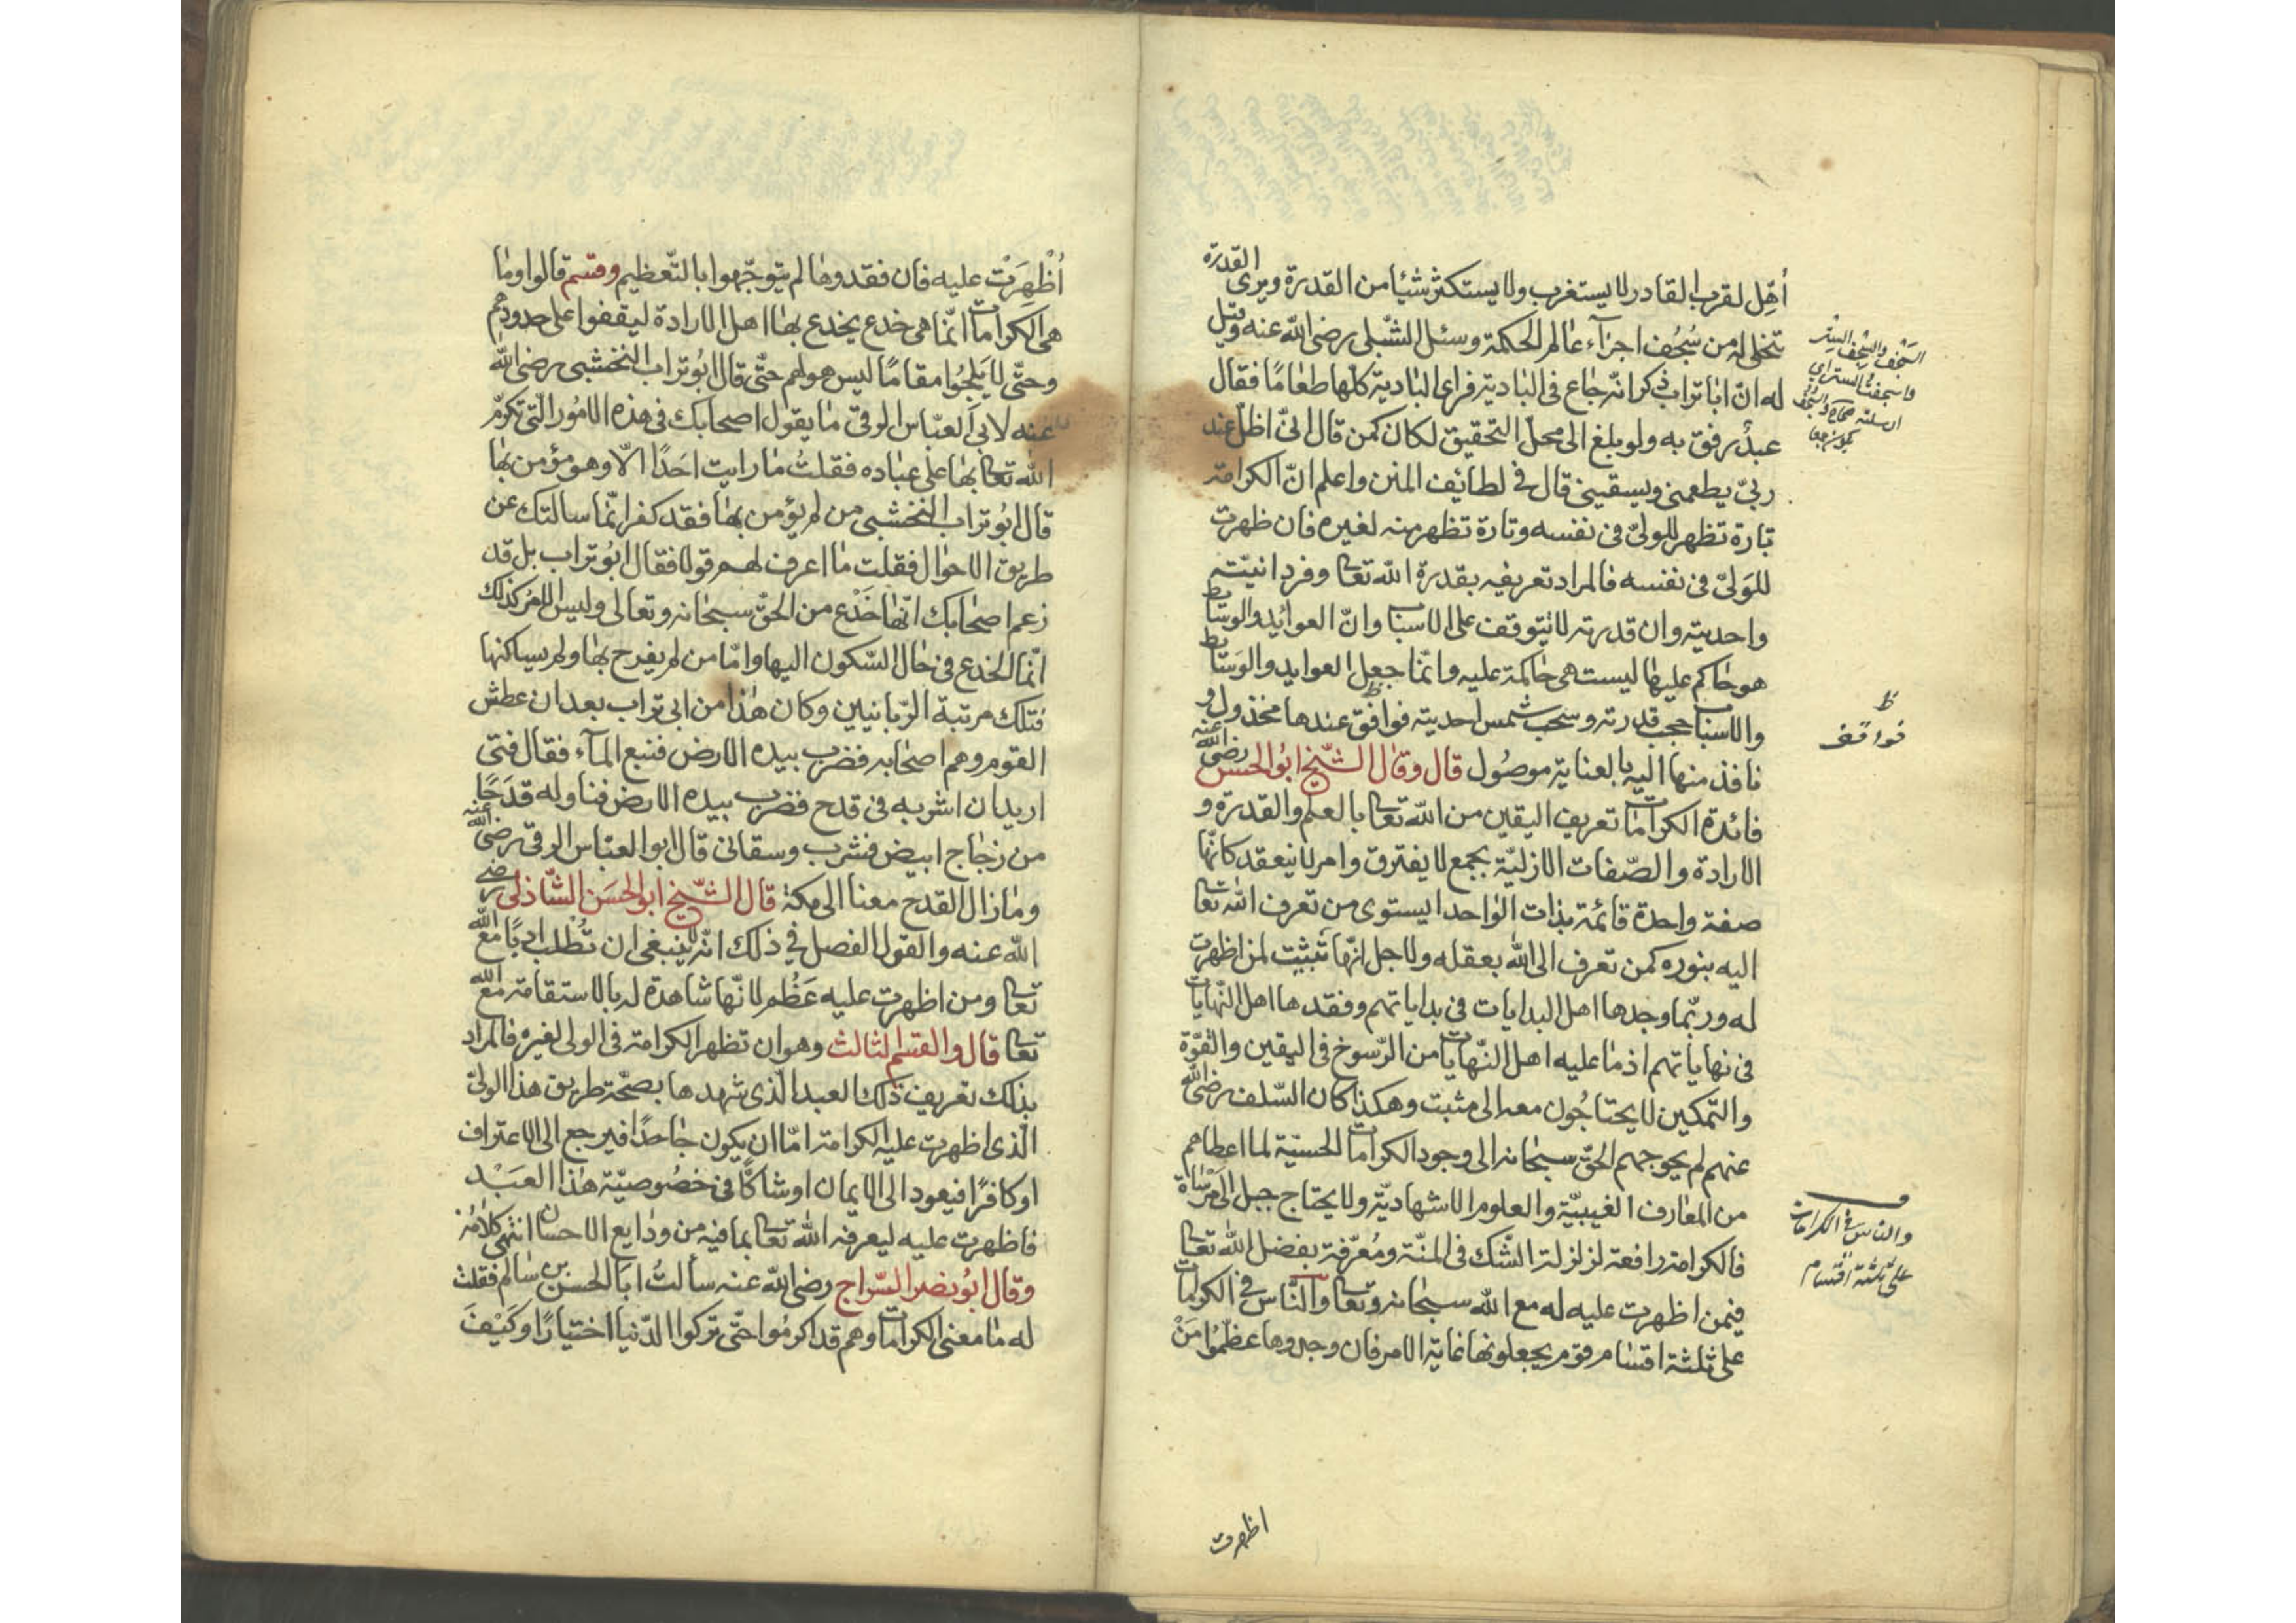 أُهِّل لقرب القادر لا يستغرب ولا يستكثر شيئا من القدرة ويرى القدرة
تتخلى له من سُجُف اجزآء عالم الحكمة وسئل الشبلى رضى الله عنه وقيل
له انّ ابا تراب ذكر انّه جاع فى البادية فراى البادية كلّها طعامًا فقال
عبدٌ رفق به ولو بلغ الى محلّ التحقيق لكان كمن قال انىّ اظلّ عند
ربىّ يطعمنى ويسقينى قال فى لطائف المنن واعلم انّ الكرامة
تارة تظهر للولىّ فى نفسه وتارة تظهر منه لغيره فان ظهرت
للوَلىّ فى نفسه فالمراد تعريفه بقدرة الله تعا وفردانيّته
واحديته وان قدرته لا تتوقف على الاسباب وانّ العوائد والوسائط
هو حاكم عليها ليست هى حاكمة عليه وانّما جعل العوايد والوسَايط
والاسباب حجب قدرته وسحب شمس احديته فوافق عندها مخذول و
نافذ منها اليه بالعناية موصُول قال وقال الشّيخ ابُو الحسن رضى الله عنه
فائدة الكرامات تعريف اليقين من الله تعا بالعلم والقدرة و
الارادة والصّفات الازليّة بجمع لا يفترق وامر لا ينعقد كانّها
صفة واحدة قائمة بذات الواحد ايستوى من تعرف الله تعا
اليه بنوره كمن تعرف الى الله بعقله ولاجل انّها تثبيت لمن اظهرت
له وربّما وجدها اهل البدايات فى بداياتهم وفقدها اهل النّهايات
فى نهاياتهم اذ ما عليه اهل النّهايات من الرّسوخ فى اليقين والقوّة
والتّمكين لا يحتاجُون معه الى مثبت وهكذا كان السّلف رضى الله
عنهم لم يحوجهم الحقّ سبحانه الى وجود الكرامات الحسيّة لما اعطاهم
من المعارف الغيبيّة والعلوم الاشهاديّة ولا يحتاج جبل الى مَرْسَاة
فالكرامة رافعة لزلزلة الشّك فى المنّة ومُعرّفة بفضل الله تعا
فيمن اظهرت عليه له مع الله سبحانه وتعا والنّاس فى الكرامات
على ثلثة اقسام قوم يجعلونها غاية الامر فان وجدوها عظّمُوا مَنْ
السَّجف والسِّجف الستر
واسجفتُ الستر اى
ارسلته صحاح
ظ
فواقف
والناس فى الكرامات
على ثلثة اقسام
اظهرت
أُظْهِرَتْ عليه فان فقدوها لم يتوجّهوا بالتّعظيم وقسم قالوا وما
هى الكرامات انّما هى خدع يخدع بها اهل الارادة ليقفوا على حدودهم
وحتّى لا يَلِجُوا مقامًا ليس هو لهم حتّى قال ابُو تراب النخشبى رضى الله
عنه لابى العبّاس الرقى ما يقول اصحابك فى هذه الامُور الّتى تكرّم
الله تعا بها على عباده فقلتُ ما رايت احَدًا الّا وهو مؤمن بها
قال ابُو تراب النخشبى من لم يؤمن بها فقد كفر انّما سالتك عن
طريق الاحوال فقلت ما اعرف لهم قولا فقال ابُو تراب بل قد
زعم اصحابك انّها خدع من الحقّ سبحانه وتعالى وليس الامر كذلك
انّما الخدع فى حال السّكون اليها وامّا من لم يفرح بها ولم يساكنها
فتلك مرتبة الرّبانيين وكان هذا من ابى تراب بعد ان عطش
القوم وهم اصحابه فضرب بيده الارض فنبع المآء فقال فتى
اريد ان اشربه فى قدح فضرب بيده الارض فناوله قدَحًا
من زجاج ابيض فشرب وسقانى قال ابو العبّاس الرقى رضى الله عنه
وما زال القدح معنا الى مكة قال الشّيخ ابو الحسَن الشّاذلى رضى
الله عنه والقول الفصل فى ذلك انّه لا ينبغى ان تُطْلب ادبًا مع الله
تعا ومن اظهرت عليه عَظُم لانّها شاهدة له بالاستقامة مع الله
تعا قال والقسم الثالث وهو ان تظهر الكرامة فى الولى لغيره فالمراد
بذلك تعريف ذلك العبد الّذى شهدها بصحّة طريق هذا الولىّ
الّذى اظهرت عليه الكرامة امّا ان يكون جاحدًا فيرجع الى الاعتراف
او كافرًا فيعود الى الايمان او شاكًّا فى خصُوصيّة هذا العبْد
فاظهرت عليه ليعرفه الله تعا بما فيه من ودايع الاحسان انتهى كلامُه
وقال ابُو نصر السّراج رضى الله عنه سألتُ ابا الحسن بن سالم فقلت
له ما معنى الكرامات وهم قد اكرمُوا حتّى تركوا الدّنيا اختيارًا وكيْفَ